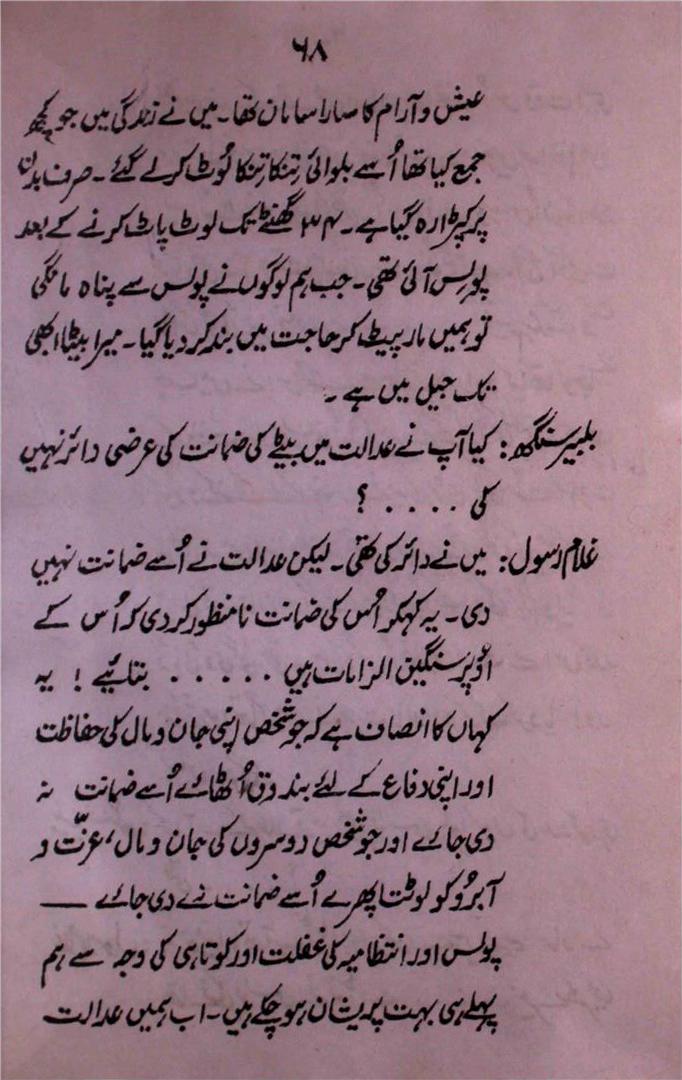 ۶۸
عیش و آرام کا سارا سامان تھا۔ میں نے زندگی میں جو کچھ
جمع کیا تھا اُسے بلوائی تِنکا تِنکا لُوٹ کر لے گئے۔ صرف بدن
پر کپڑا رہ گیا ہے۔ ۳۴ گھنٹے تک لوٹ پاٹ کرنے کے بعد
پولِس آئی تھی۔ جب ہم لوگوں نے پولس سے پناہ مانگی
تو ہمیں مار پیٹ کر حاجت میں بند کر دیا گیا۔ میرا بیٹا ابھی
تک جیل میں ہے۔
بلبیر سنگھ: کیا آپ نے عدالت میں بیٹے کی ضمانت کی عرضی دائر نہیں
کی . . . . ؟
غلام رسول: میں نے دائر کی تھی۔ لیکن عدالت نے اُسے ضمانت نہیں
دی۔ یہ کہکر اُس کی ضمانت نامنظور کر دی کہ اُس کے
اُوپر سنگین الزامات ہیں . . . . . بتائیے ! یہ
کہاں کا انصاف ہے کہ جو شخص اپنی جان و مال کی حفاظت
اور اپنی دفاع کے لئے بندوق اُٹھائے اُسے ضمانت نہ
دی جائے اور جو شخص دوسروں کی جان و مال، عزّت و
آبرُو کو لوٹتا پھرے اُسے ضمانت دے دی جائے ——
پولس اور انتظامیہ کی غفلت اور کوتاہی کی وجہ سے ہم
پہلے ہی بہت پریشان ہو چکے ہیں۔ اب ہمیں عدالت